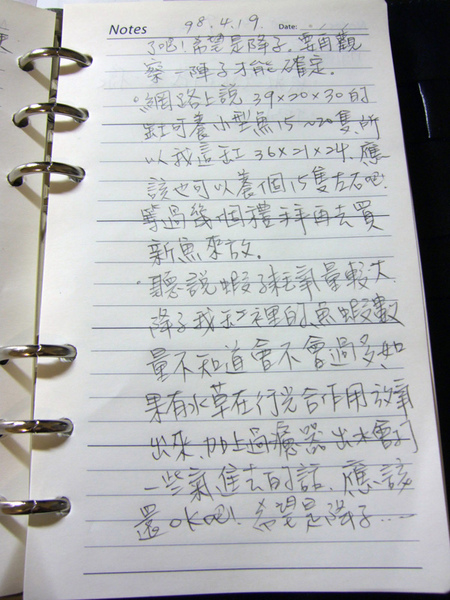 Notes 98.4.19. Date:
了吧!希望是降子.要再觀
察一陣子才能確定.
。網路上說39×20×30的
缸可養小型魚15~20隻,所
以我這缸36×21×24.應
該也可以養個15隻左右吧.
等過幾個禮拜再去買
新魚來放.
。聽說蝦子耗氧量較大.
降子我缸裡的魚蝦數
量不知道會不會過多,如
果有水草在行光合作用放氧
出來,加上過濾器出水會打
一些氧進去的話.應該
還OK吧!希望是降子....